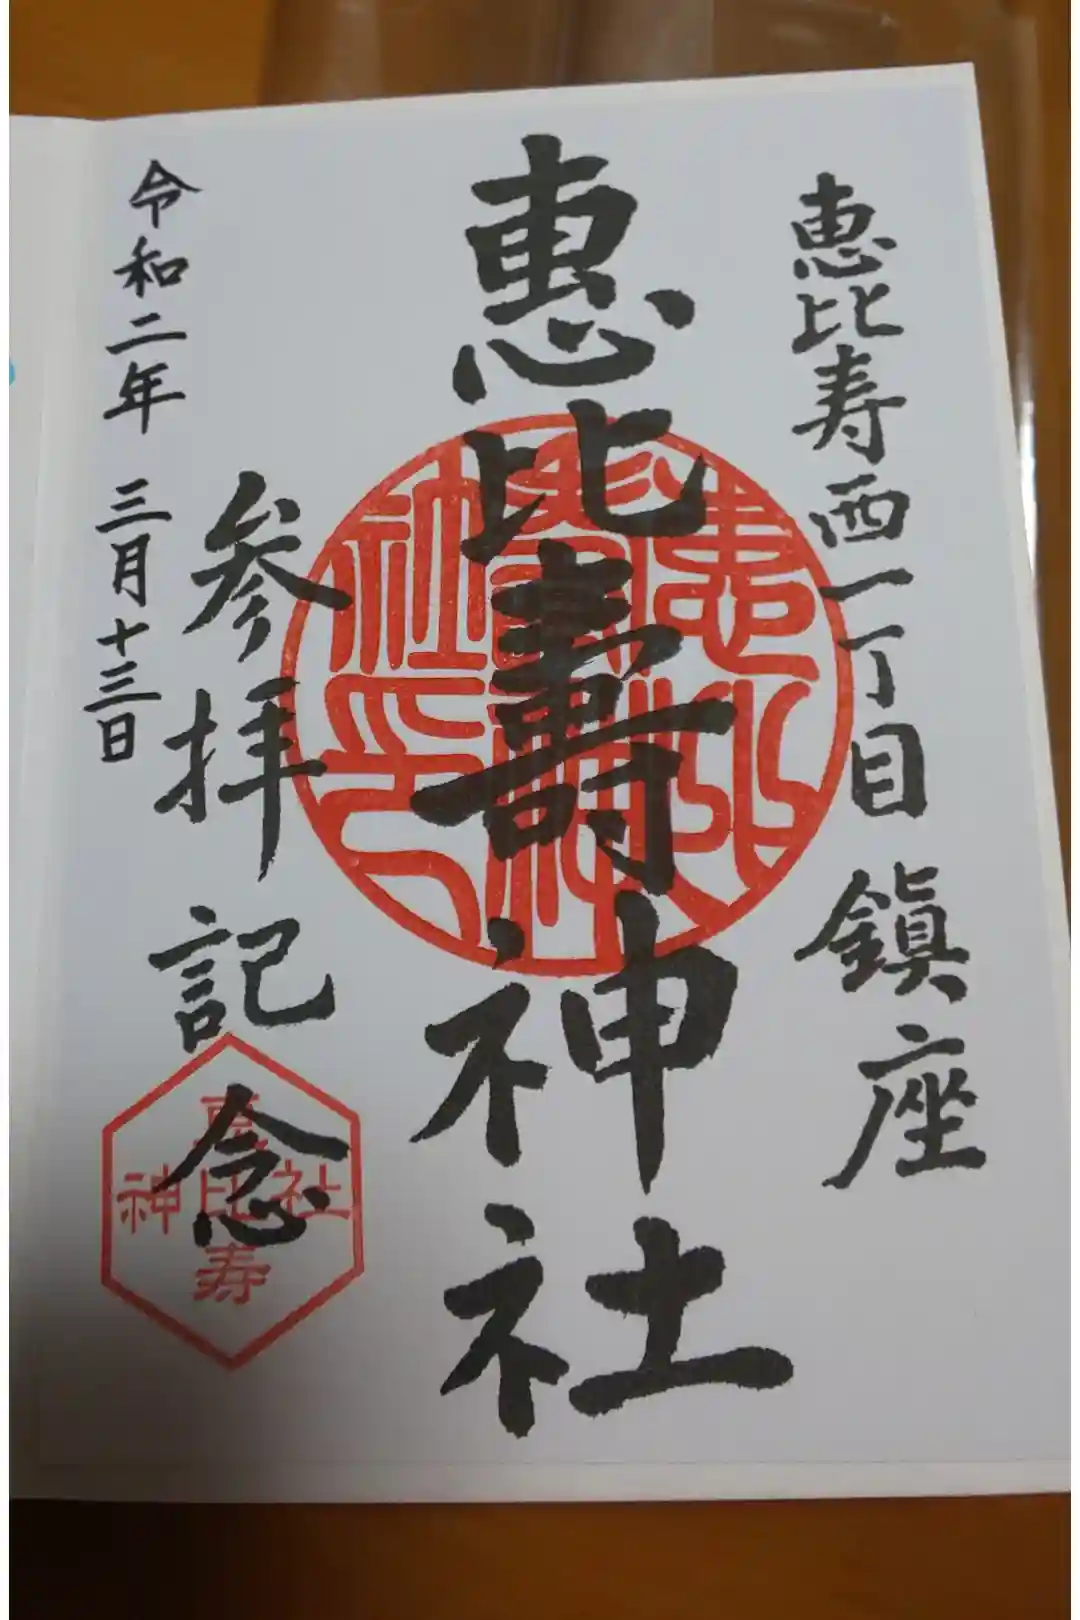 恵比寿西一丁目 鎮座
恵比壽神社
参拝記念
令和二年 三月十三日
恵
神比社
寿